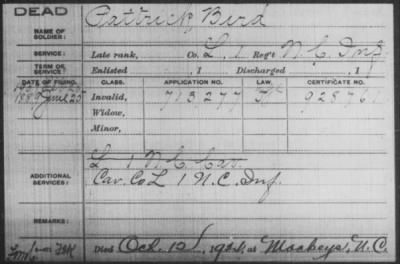 DEAD
Pattrick Bird
NAME OF
SOLDIER:
SERVICE:
Late rank, Co. L, 1 Reg't N.C. Inf.
TERM OF
SERVICE:
Enlisted , 1 Discharged , 1
DATE OF FILING. CLASS. APPLICATION NO. LAW. CERTIFICATE NO.
1889 June 25 Invalid, 713277 928761
Widow,
Minor,
L 1 N.C. Cav.
ADDITIONAL
SERVICES:
Cav. Co L 1 N.C. Inf.
REMARKS:
Died Oct. 12, 1921, at Mackeys, N.C.